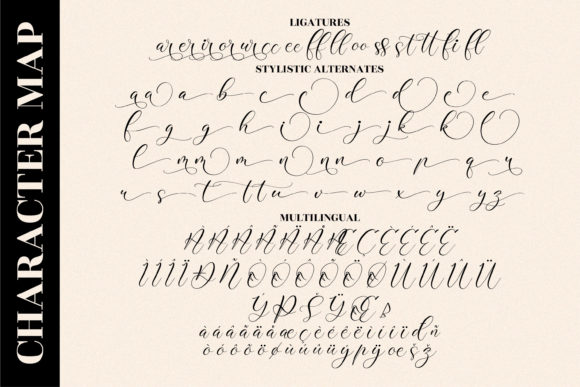 CHARACTER MAP
LIGATURES
ar er ir or ur cc ee ff ll oo ss st tt fi fl
STYLISTIC ALTERNATES
a a a b c c d d e e
f g g h i i j j k k l
l m m m n n n o p q r
u s t t t u v w x y y z
MULTILINGUAL
À Á Â Ã Ä Å Æ Ç È É Ê Ë
Ì Í Î Ï Ð Ñ Ò Ó Ô Õ Ö Ø Ù Ú Û Ü
Ý Þ Š Ÿ Œ
à á â ã ä å æ ç è é ê ë ì í î ï ð ñ
ò ó ô õ ö ø ù ú û ü ý þ ÿ œ š ž